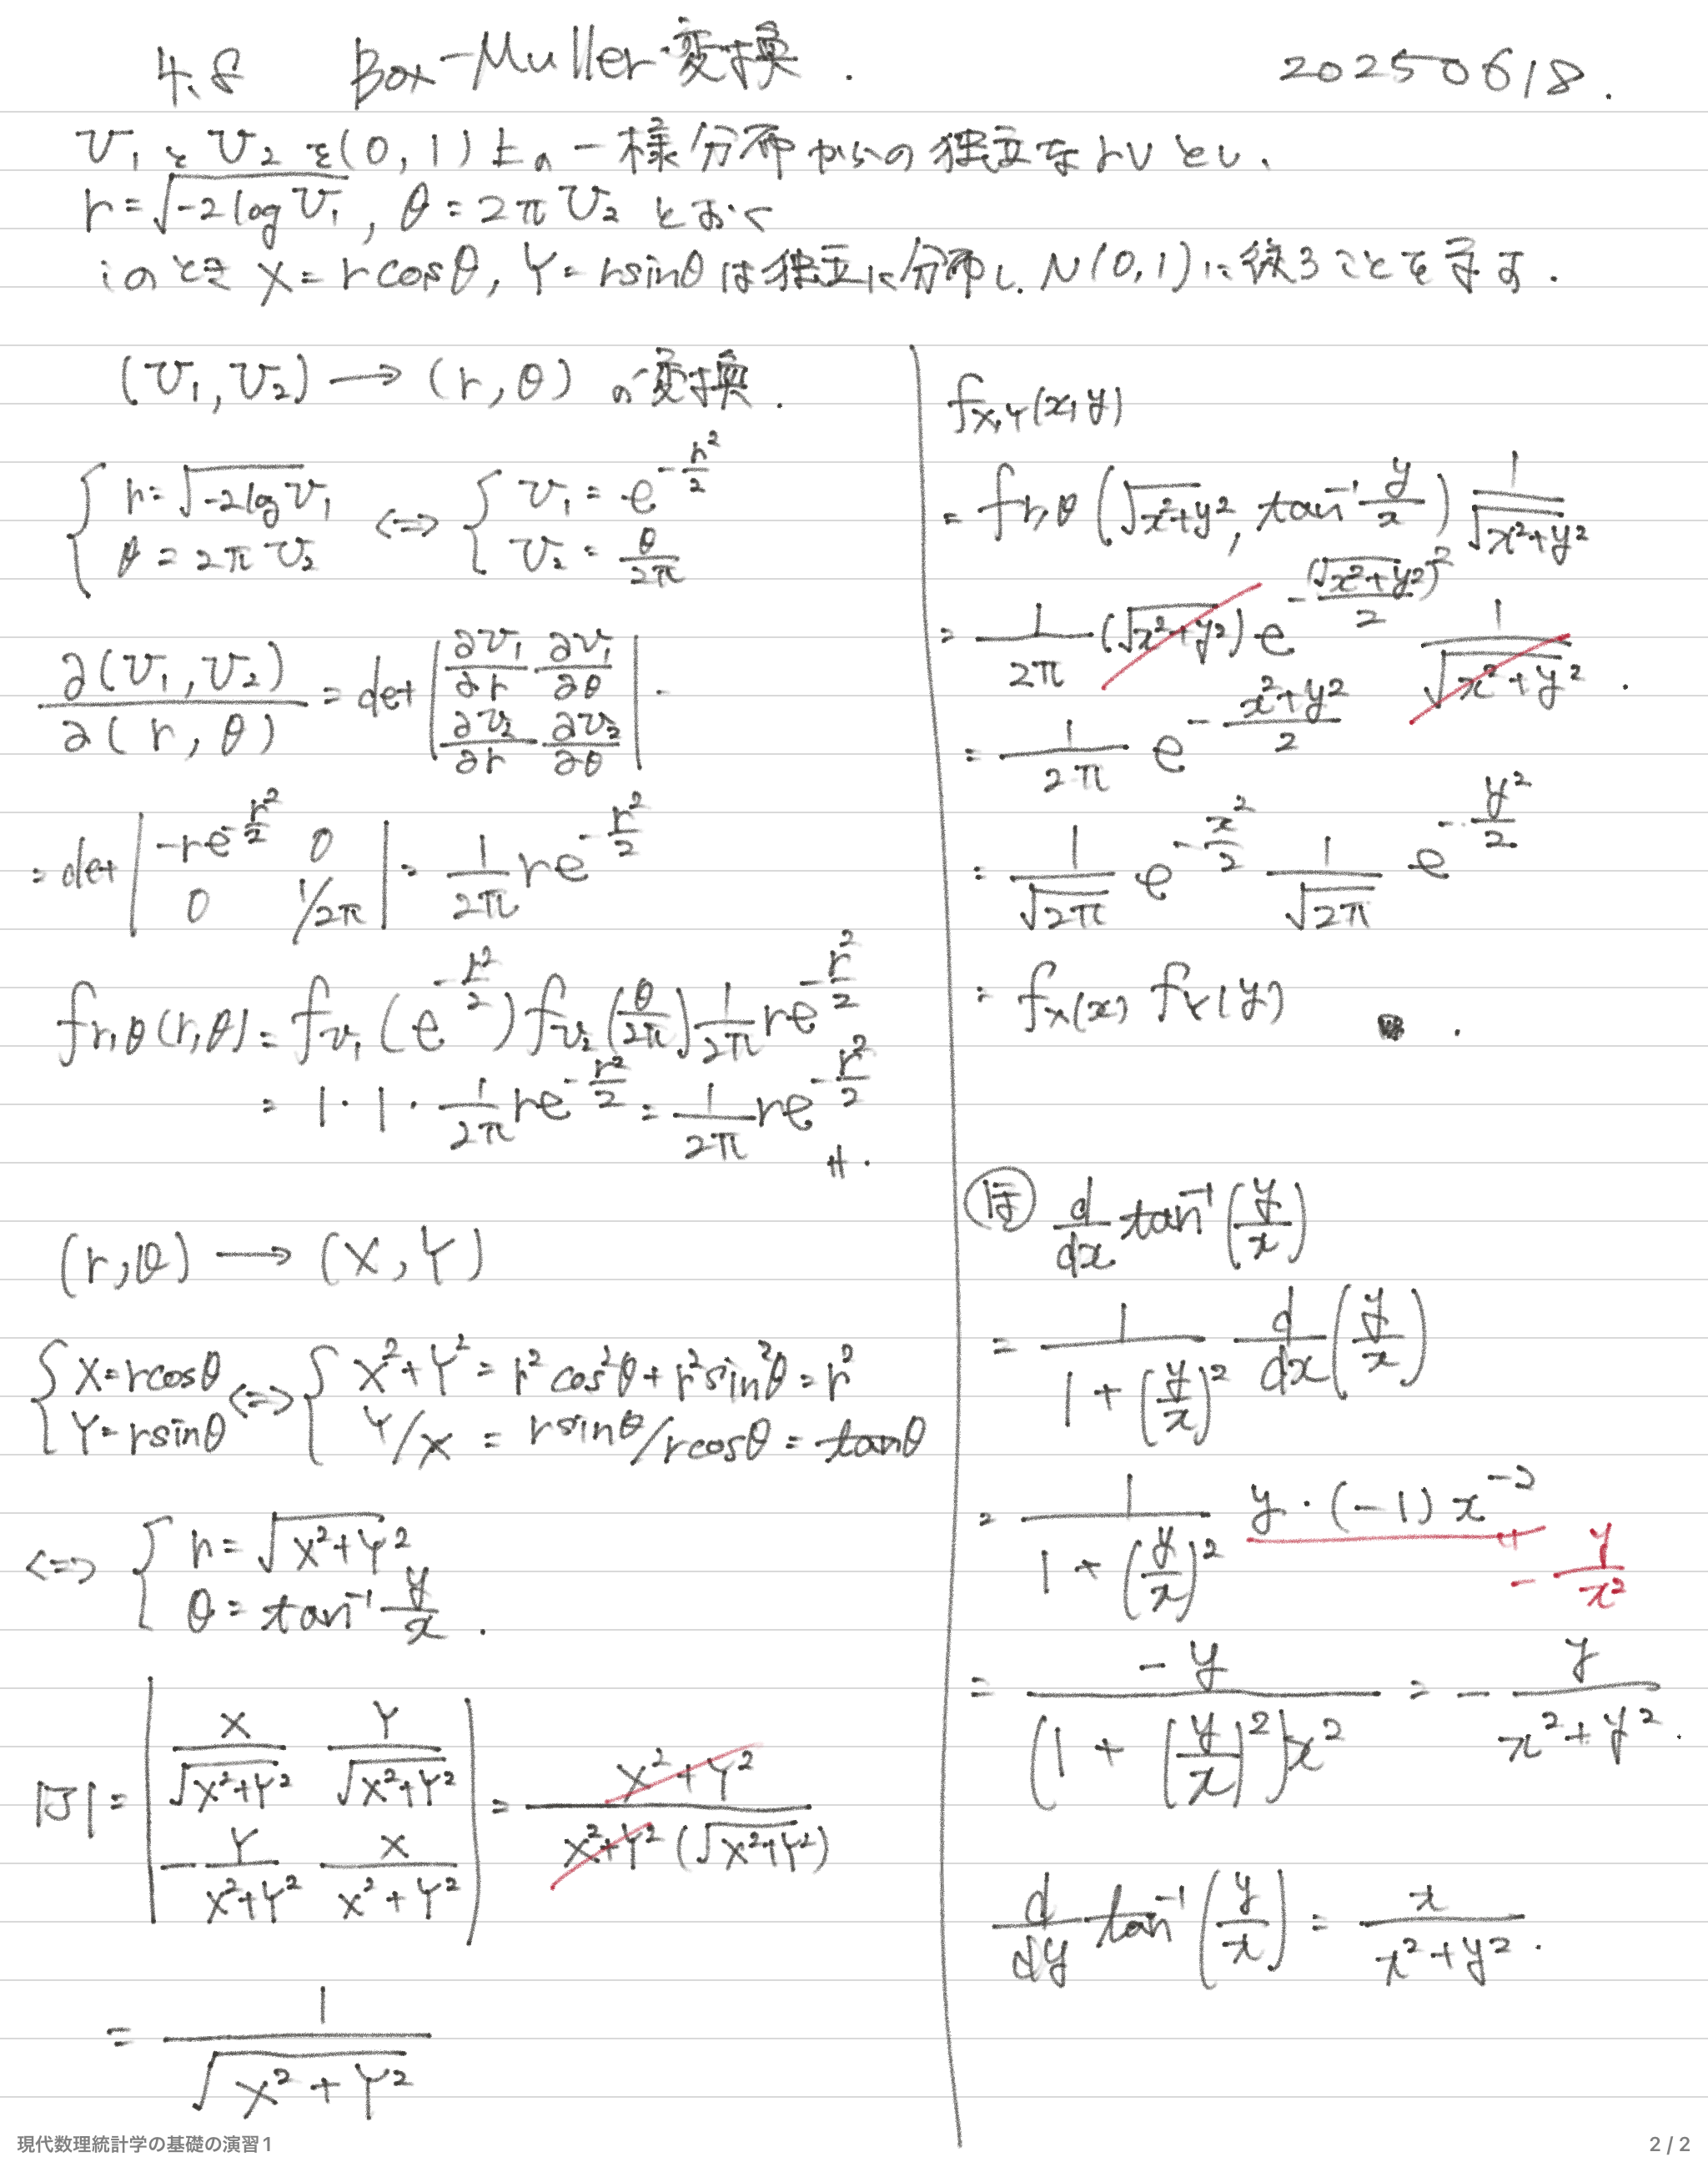 4.8 Box-Muller変換. 20250618.
U₁とU₂を(0,1)上の一様分布からの独立なrvとし、
r=√(-2logU₁), θ=2πU₂ とおく
このとき X=rcosθ, Y=rsinθは独立に分布し、N(0,1)に従うことを示す.
(U₁,U₂)→(r,θ)の変換.
{ r=√(-2logU₁) <=> { U₁=e^(-r²/2)
θ=2πU₂ U₂=θ/2π
∂(U₁,U₂)/∂(r,θ) = det|∂U₁/∂r ∂U₁/∂θ
∂U₂/∂r ∂U₂/∂θ|.
=det|-re^(-r²/2) 0
0 1/2π| = 1/2π re^(-r²/2)
f_{r,θ}(r,θ)=f_{U₁}(e^(-r²/2))f_{U₂}(θ/2π) 1/2π re^(-r²/2)
=1・1・1/2π re^(-r²/2)=1/2π re^(-r²/2)
(r,θ)→(X,Y)
{ X=rcosθ <=> { X²+Y²=r²cos²θ+r²sin²θ=r²
Y=rsinθ Y/X = rsinθ/rcosθ=tanθ
<=> { r=√(X²+Y²)
θ=tan⁻¹ y/x.
|J|=|X/√(X²+Y²) Y/√(X²+Y²)
-Y/(X²+Y²) X/(X²+Y²)| = X²+Y²/X²+Y²(√(X²+Y²))
= 1/√(X²+Y²)
f_{X,Y}(x,y)
= f_{r,θ}(√(x²+y²), tan⁻¹ y/x) 1/√(x²+y²)
= 1/2π (√(x²+y²)) e^(-(√(x²+y²))²/2) 1/√(x²+y²).
= 1/2π e^(-(x²+y²)/2)
= 1/√(2π) e^(-x²/2) 1/√(2π) e^(-y²/2)
= f_X(x) f_Y(y) .
ほ d/dx tan⁻¹(y/x)
= 1/(1+(y/x)²) d/dx(y/x)
= 1/(1+(y/x)²) y・(-1)x⁻²
-y/x²
= -y/((1+(y/x)²)x²) = -y/(x²+y²).
d/dy tan⁻¹(y/x) = x/(x²+y²).
現代数理統計学の基礎の演習1 2 / 2